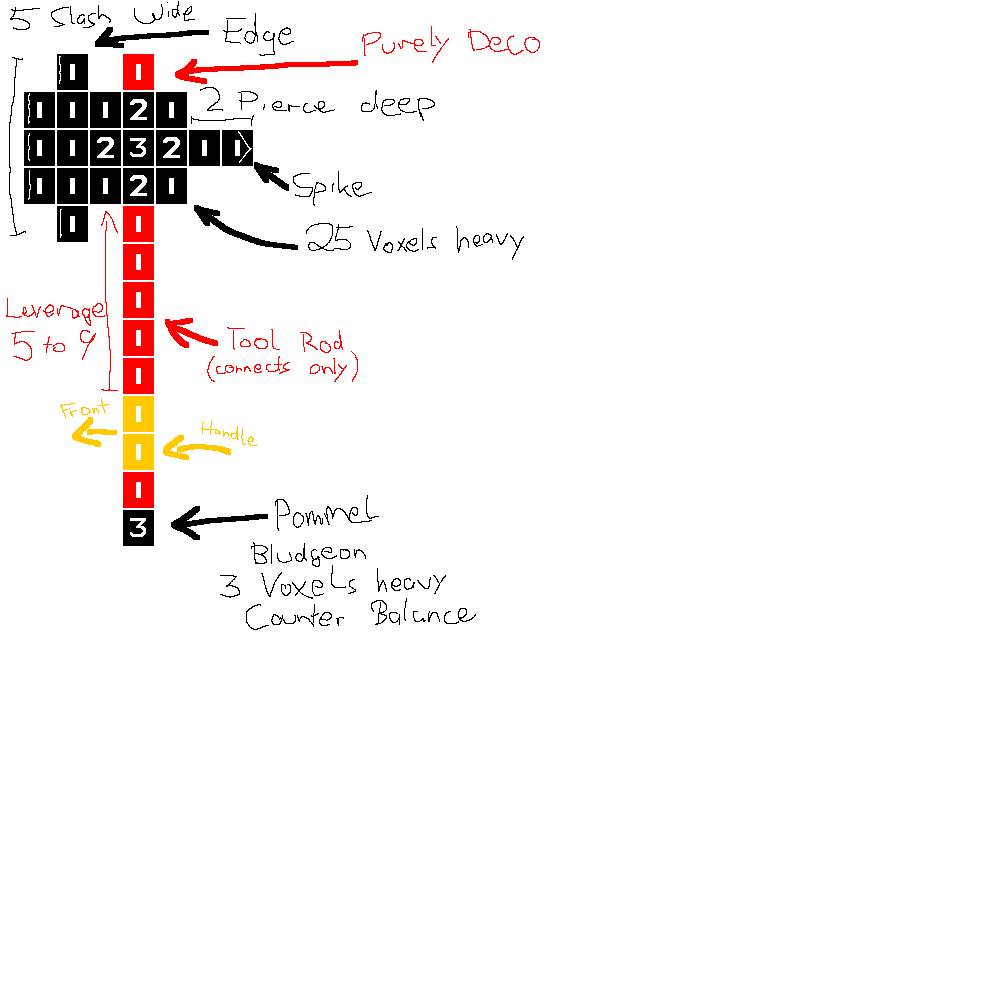 5 Slash Wide
Edge
Purely Deco
1 1
1 1 1 2 1
2 Pierce deep
1 1 2 3 2 1 1
Spike
1 1 1 2 1
1 1
25 Voxels heavy
1
1
Leverage
5 to 9
1
Tool Rod
(connects only)
1
Front
1
Handle
1
1
3
Pommel
Bludgeon
3 Voxels heavy
Counter Balance